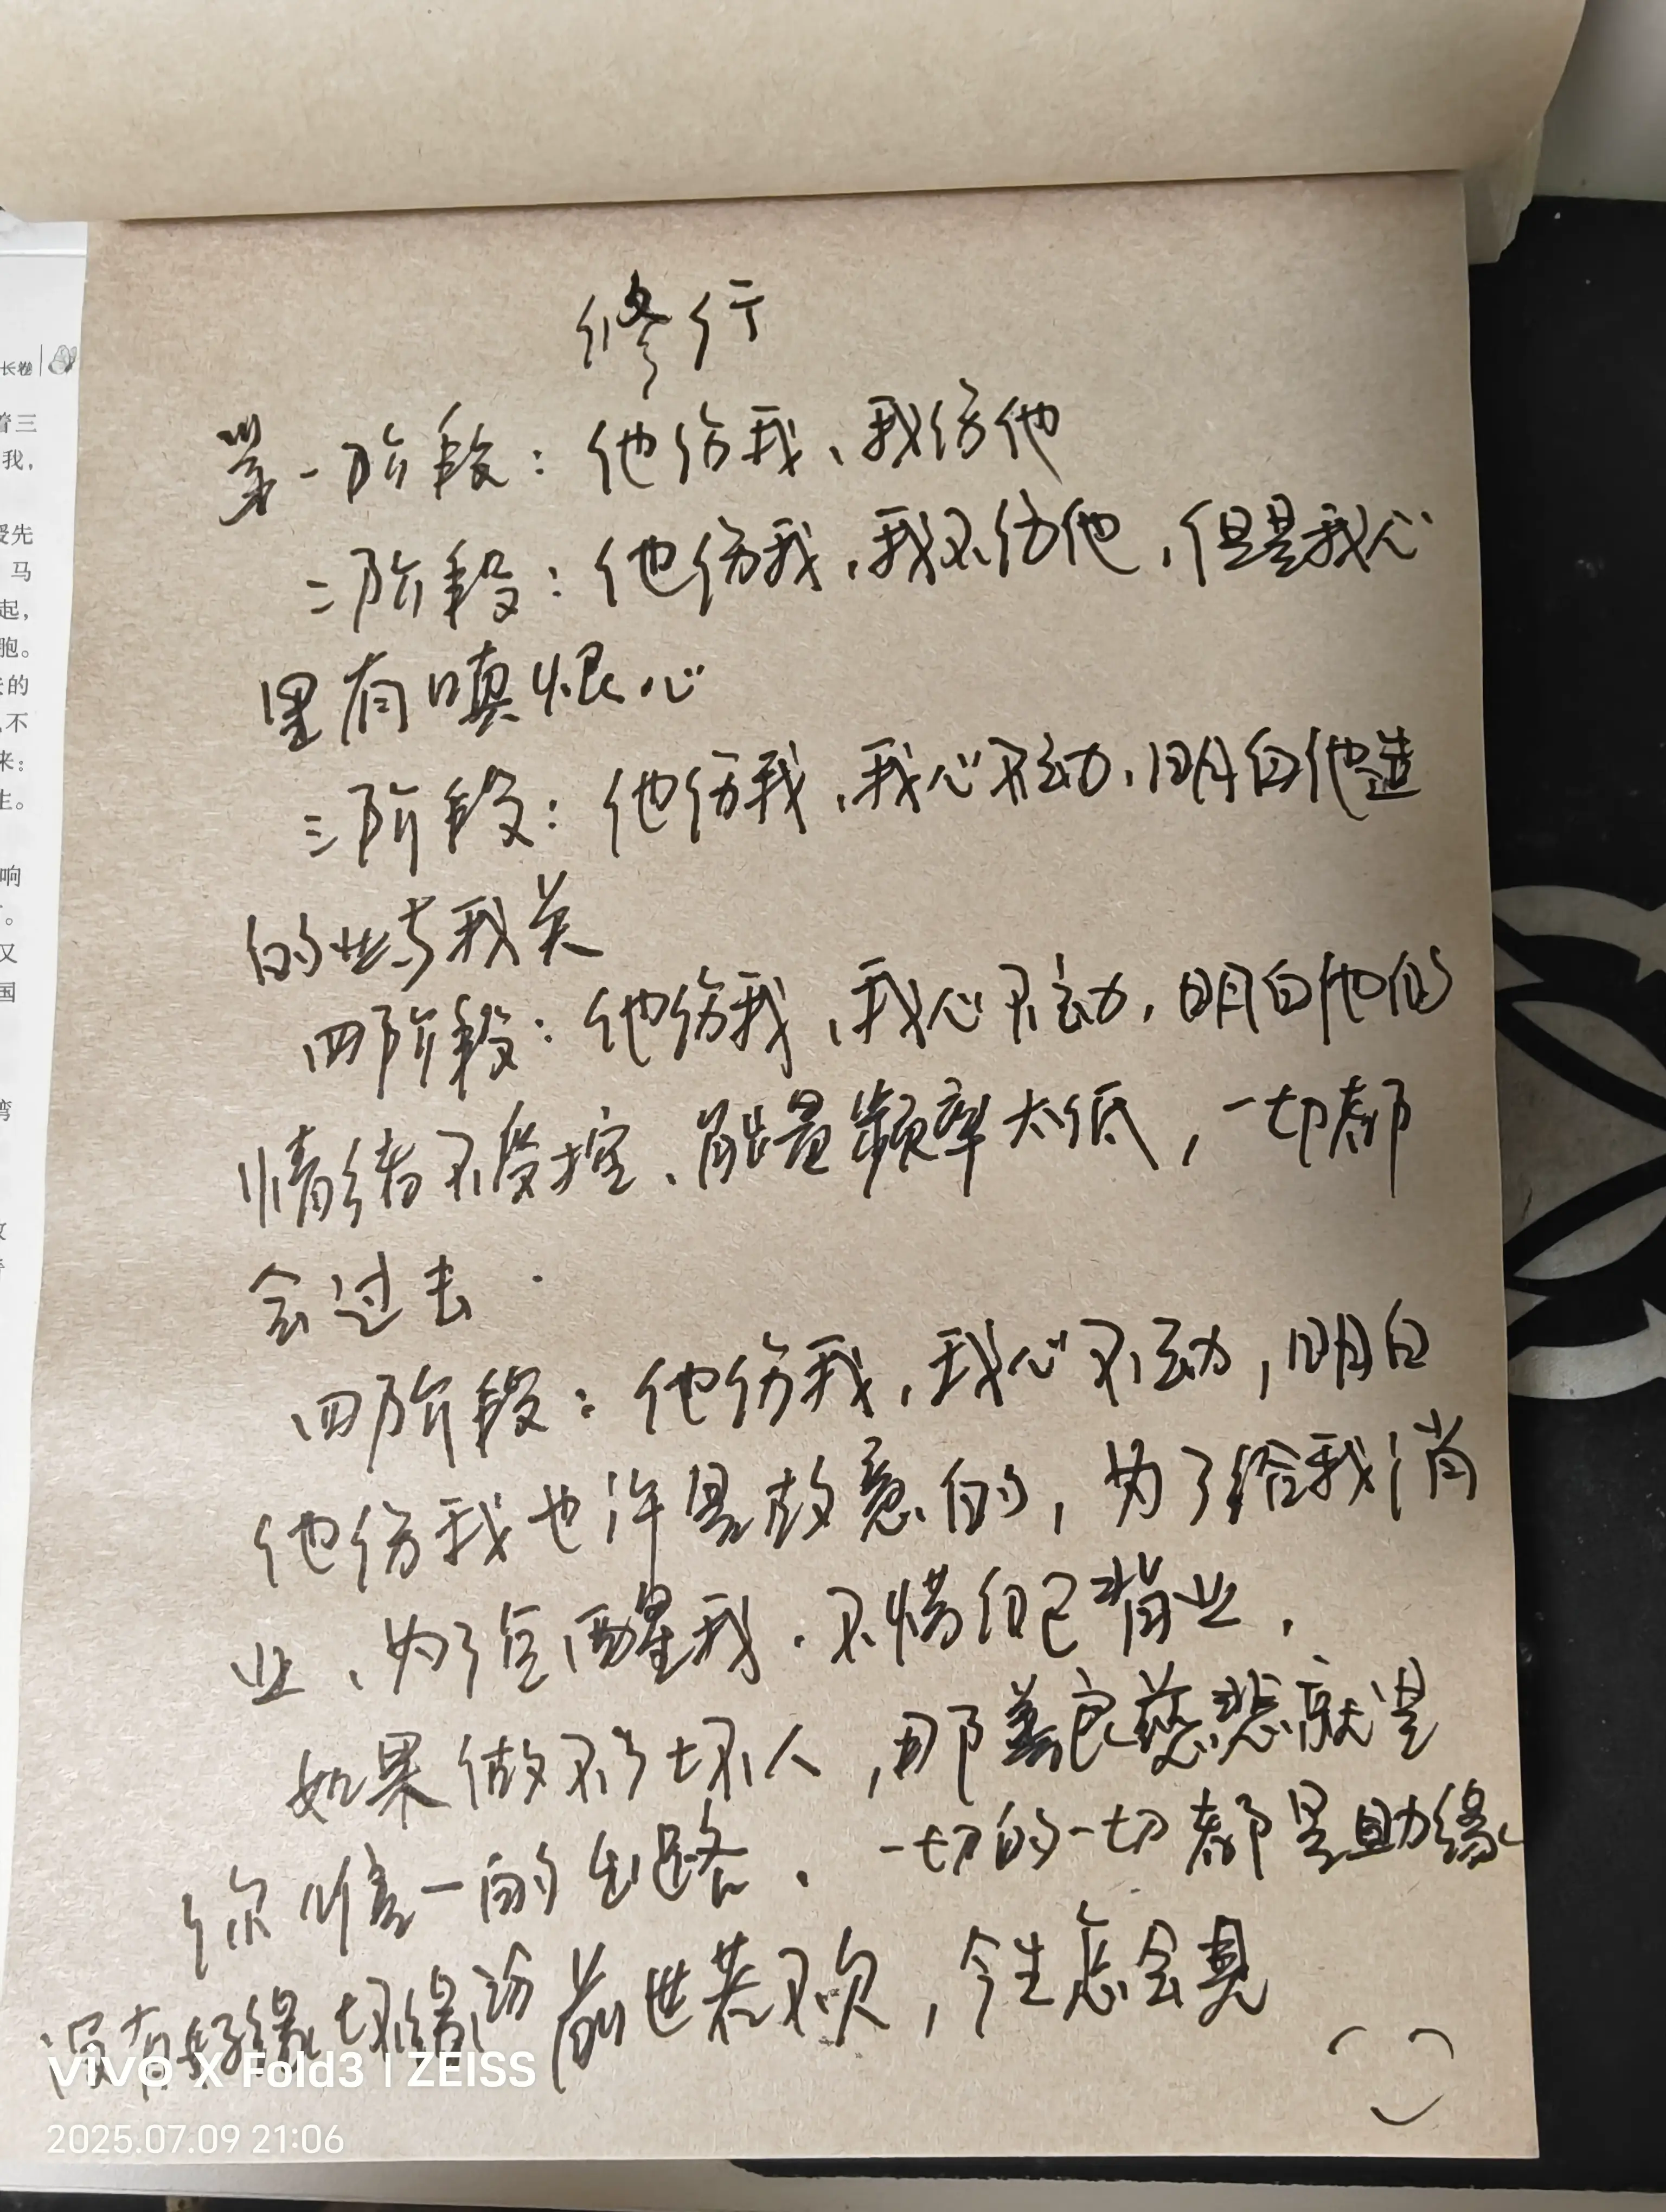 长卷
着三
我,
受先
马
起,
胞。
的
不
来:
生。
响
。
又
国
修行
第一阶段：他伤我、我伤他
二阶段：他伤我，我不伤他，但是我心
里有嗔恨心
三阶段：他伤我，我心不动，明白他造
的业与我关
四阶段：他伤我，我心不动，明白他的
情绪不受控、能量频率太低，一切都
会过去．
四阶段：他伤我，我心不动，明白
他伤我也许是故意的，为了给我消
业、为了点醒我．不惜自己背业．
如果做不了坏人，那善良慈悲就是
你唯一的出路．一切的一切都是助缘
没有好缘坏缘之分 前世若不欠，今生怎会見
vivo X Fold3 | ZEISS
2025.07.09 21:06